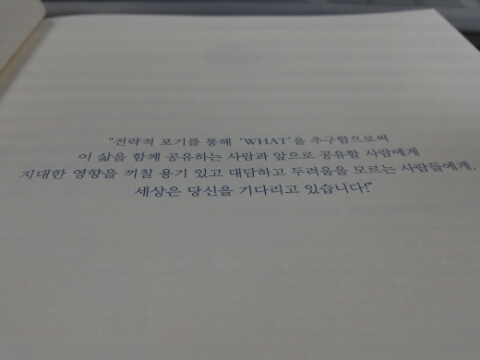 "전략적 포기를 통해 'WHAT'을 추구함으로써
이 삶을 함께 공유하는 사람과 앞으로 공유할 사람에게
지대한 영향을 끼칠 용기 있고 대담하고 두려움을 모르는 사람들에게.
세상은 당신을 기다리고 있습니다!"